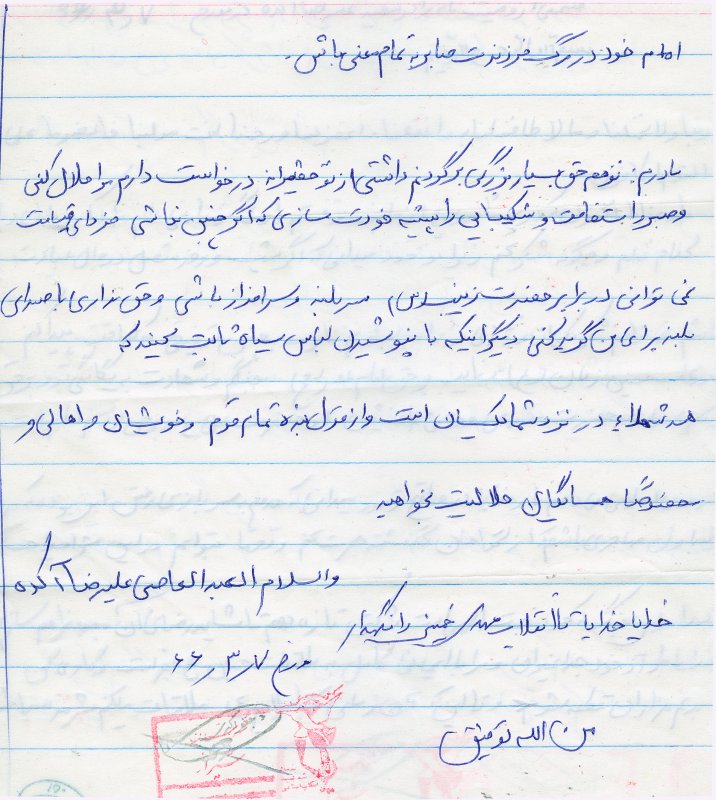 امام خود در مرگ فرزندت صابر به تمام معنی باش.
مادرم: تو هم حق بسیار بزرگی بر گردنم داشتی از تو حقیرانه درخواست دارم مرا حلال کنی
و صبر و استقامت و شکیبایی را پیشه خودت سازی که اگر چنین نباشی فردای قیامت
نمی توانی در برابر حضرت زینب (س) سربلند و سرافراز باشی و حق نداری با صدای
بلند برای من گریه کنی دیگر اینکه با نپوشیدن لباس سیاه ثابت کنید که
هر شهداء در نزد شما یکسان است و از قول بنده تمام قوم و خویشان و اهالی و
مخصوصاً همسایگان حلالیت بخواهید
والسلام العبد العاصی علیرضا آکوه
خدایا خدایا تا انقلاب مهدی خمینی را نگهدار
مورخ ۶۶/۳/۷
من الله توفیق